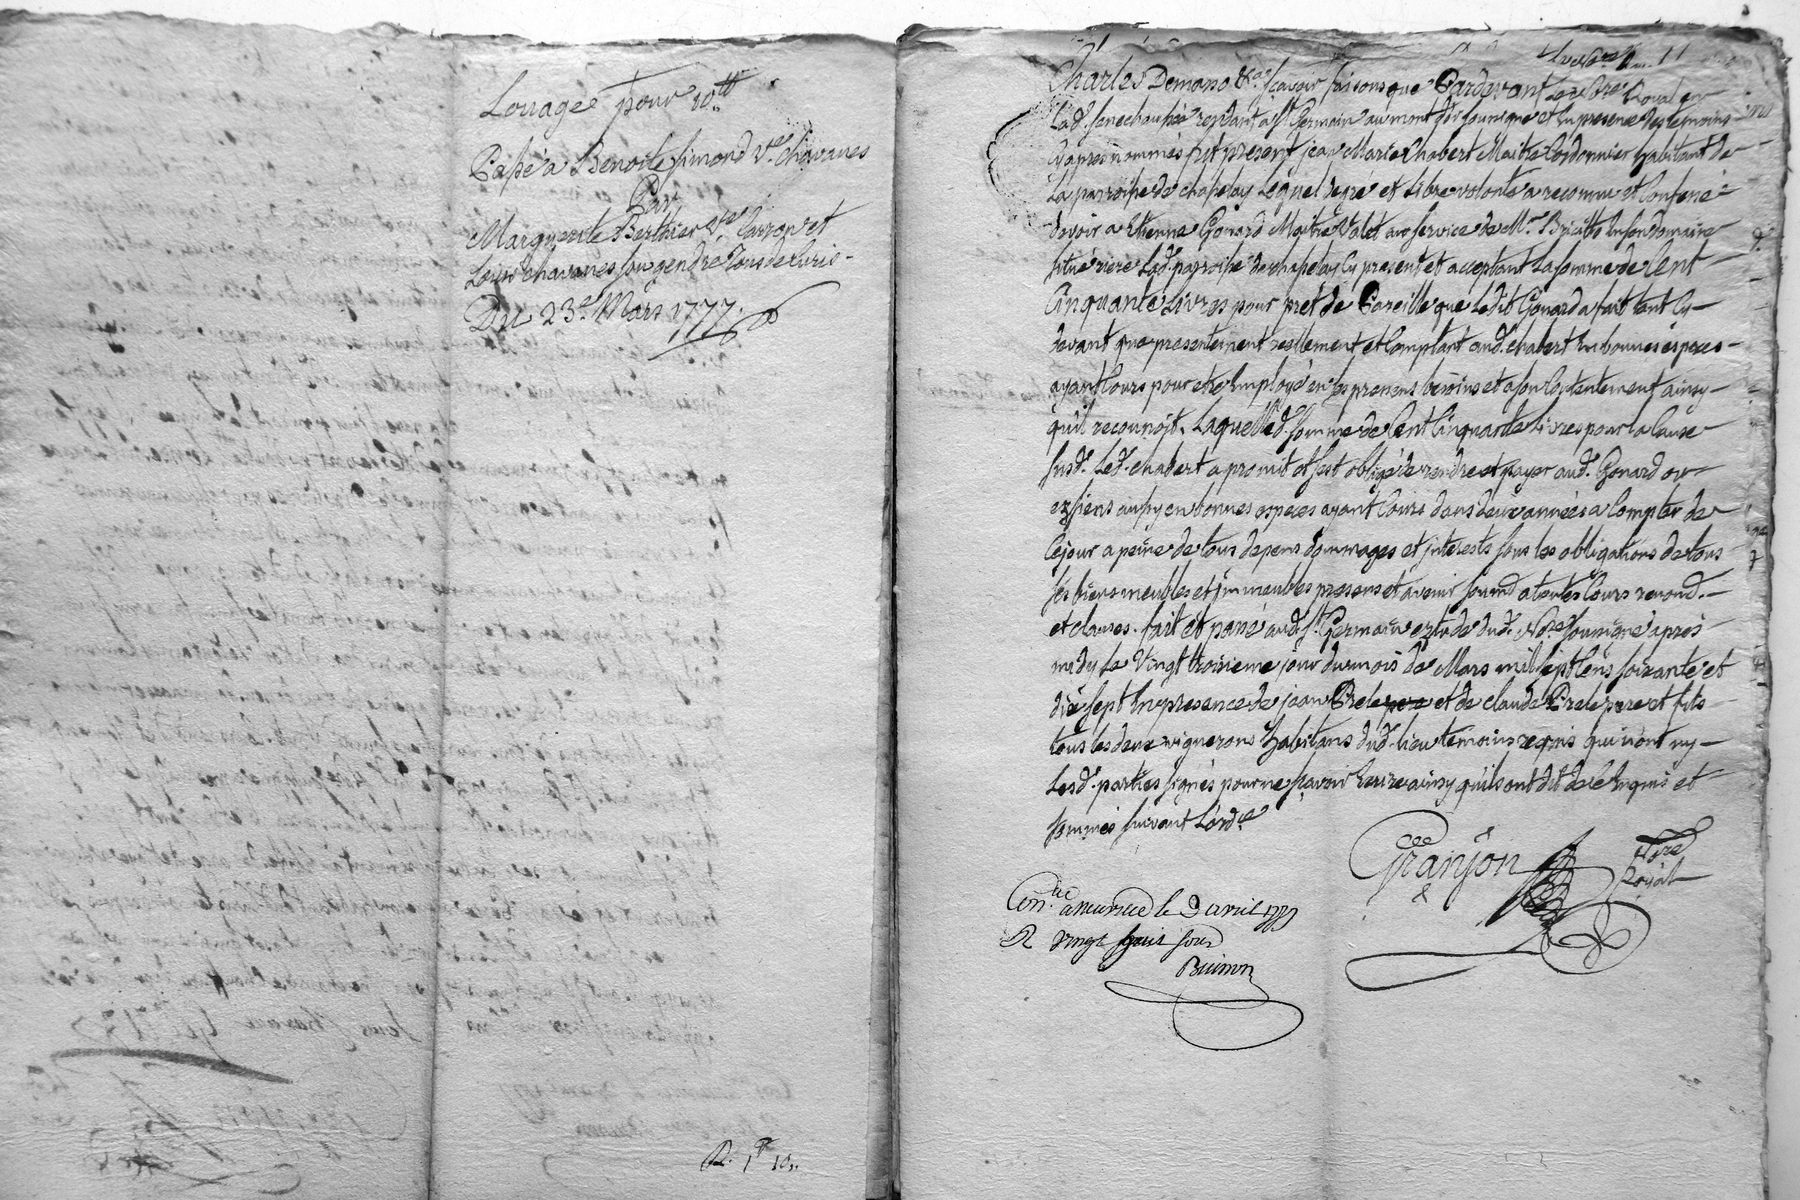 Louagee pour 10.tt
Passé a Benoite Simond Ve. Chavanes
Par
Marguerite Berthier Ve. Larzon et
Louis chavanes son gendre tous de Curis-
Du 23e. Mars 1777.
R. 1# 10s.
Charles Demono &ca. sçavoir faisons que Pardevant Le Nore. Royal en
Lad. senechaussée residant a St. Germain au mont d'or soussigné et En presence des temoins
cy apres nommés fut present jean Marie Chabert Maitre Cordonnier habitant de
La parroisse de chasselay Lequel de gré et Libre volonté a reconnu et Confessé
devoir a Etienne Gonard Maitre Valet au service de Mr. en son domaine
situé rière Lad. parroisse de chasselay Cy present et acceptant La somme de Cent
Cinquante Livres pour pret de Pareille que Ledit Gonard a fait tant Cy-
devant que presentement reellement et Comptant aud. chabert En bonnes especes-
ayant Cours pour etre Employé en ses pressens besoins et a son Contentement ainsy-
qu'il reconnoit. Laquelle d. somme de Cent Cinquante Livres pour la Cause
susd. Led. chabert a promit et s'est obligé de rendre et payer aud. Gonard ou
ez siens aussy en bonnes especes ayant Cours dans deux années a Compter de
Cejour a peine de tous depens dommages et interests sous les obligations de tous
ses biens meubles et immeubles presens et avenir soumd. a toutes Cours renond.-
et clauses. fait et passé aud. St. Germain etude dud. Nore. soussigné apres
midy Le Vingt troisieme jour du mois de Mars mil sept Cens soixante et
dix sept En presence de jean Prele pere et de claude Prele pere et fils
tous les deux vignerons habitans dud. Lieu temoins requis qui n'ont ny-
Lesd. parties signés pour ne sçavoir Ecrire ainsy qu'ils ont dit de ce Enquis et
sommés suivant L'ordce
Granjon Nore
Royal
&
Conlle. a neufville le 9 avril 1777
R vingt huit sous
Buisson